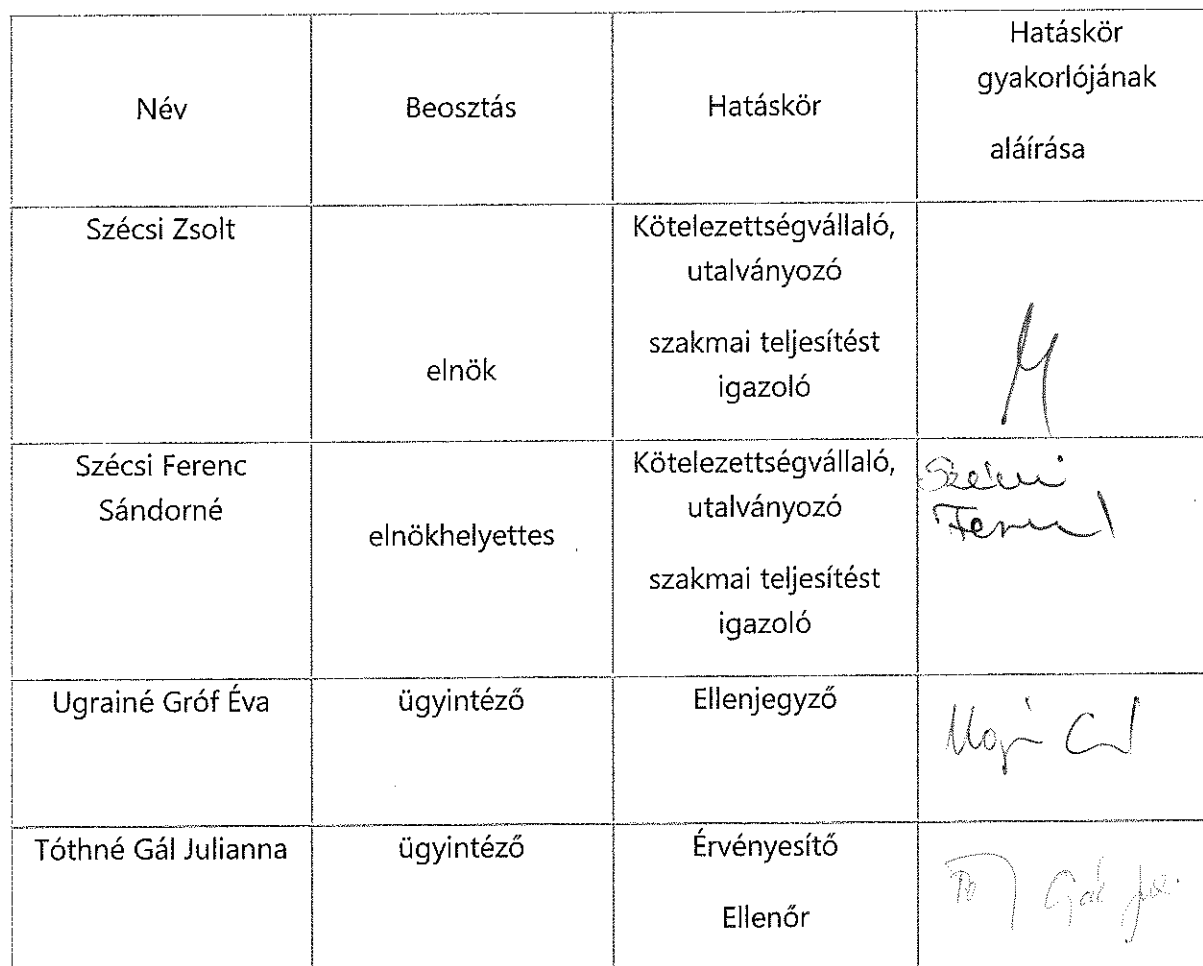 Név
Beosztás
Hatáskör
Hatáskör
gyakorlójának
aláírása
Szécsi Zsolt
elnök
Kötelezettségvállaló,
utalványozó
szakmai teljesítést
igazoló
Szécsi Ferenc
Sándorné
elnökhelyettes
Kötelezettségvállaló,
utalványozó
szakmai teljesítést
igazoló
Ugrainé Gróf Éva
ügyintéző
Ellenjegyző
Tóthné Gál Julianna
ügyintéző
Érvényesítő
Ellenőr